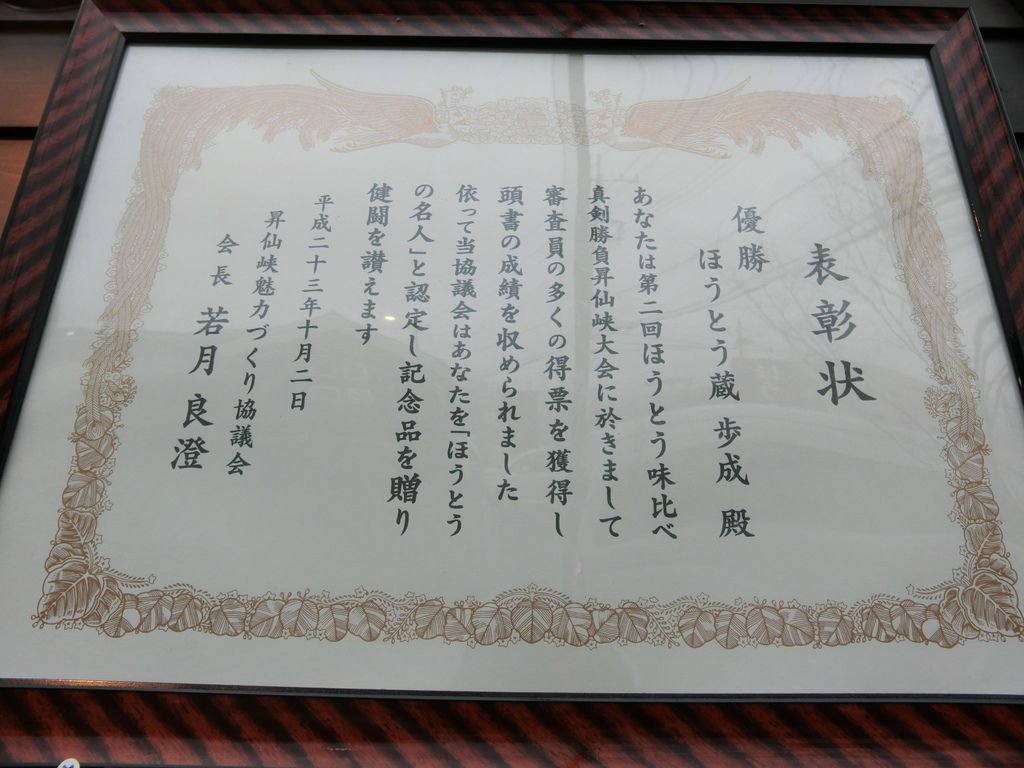 表彰状
優勝
ほうとう蔵 歩成 殿
あなたは第二回ほうとう味比べ
真剣勝負昇仙峡大会に於きまして
審査員の多くの得票を獲得し
頭書の成績を収められました
依って当協議会はあなたを「ほうとう
の名人」と認定し記念品を贈り
健闘を讃えます
平成二十三年十月二日
昇仙峡魅力づくり協議会
会長 若月 良澄